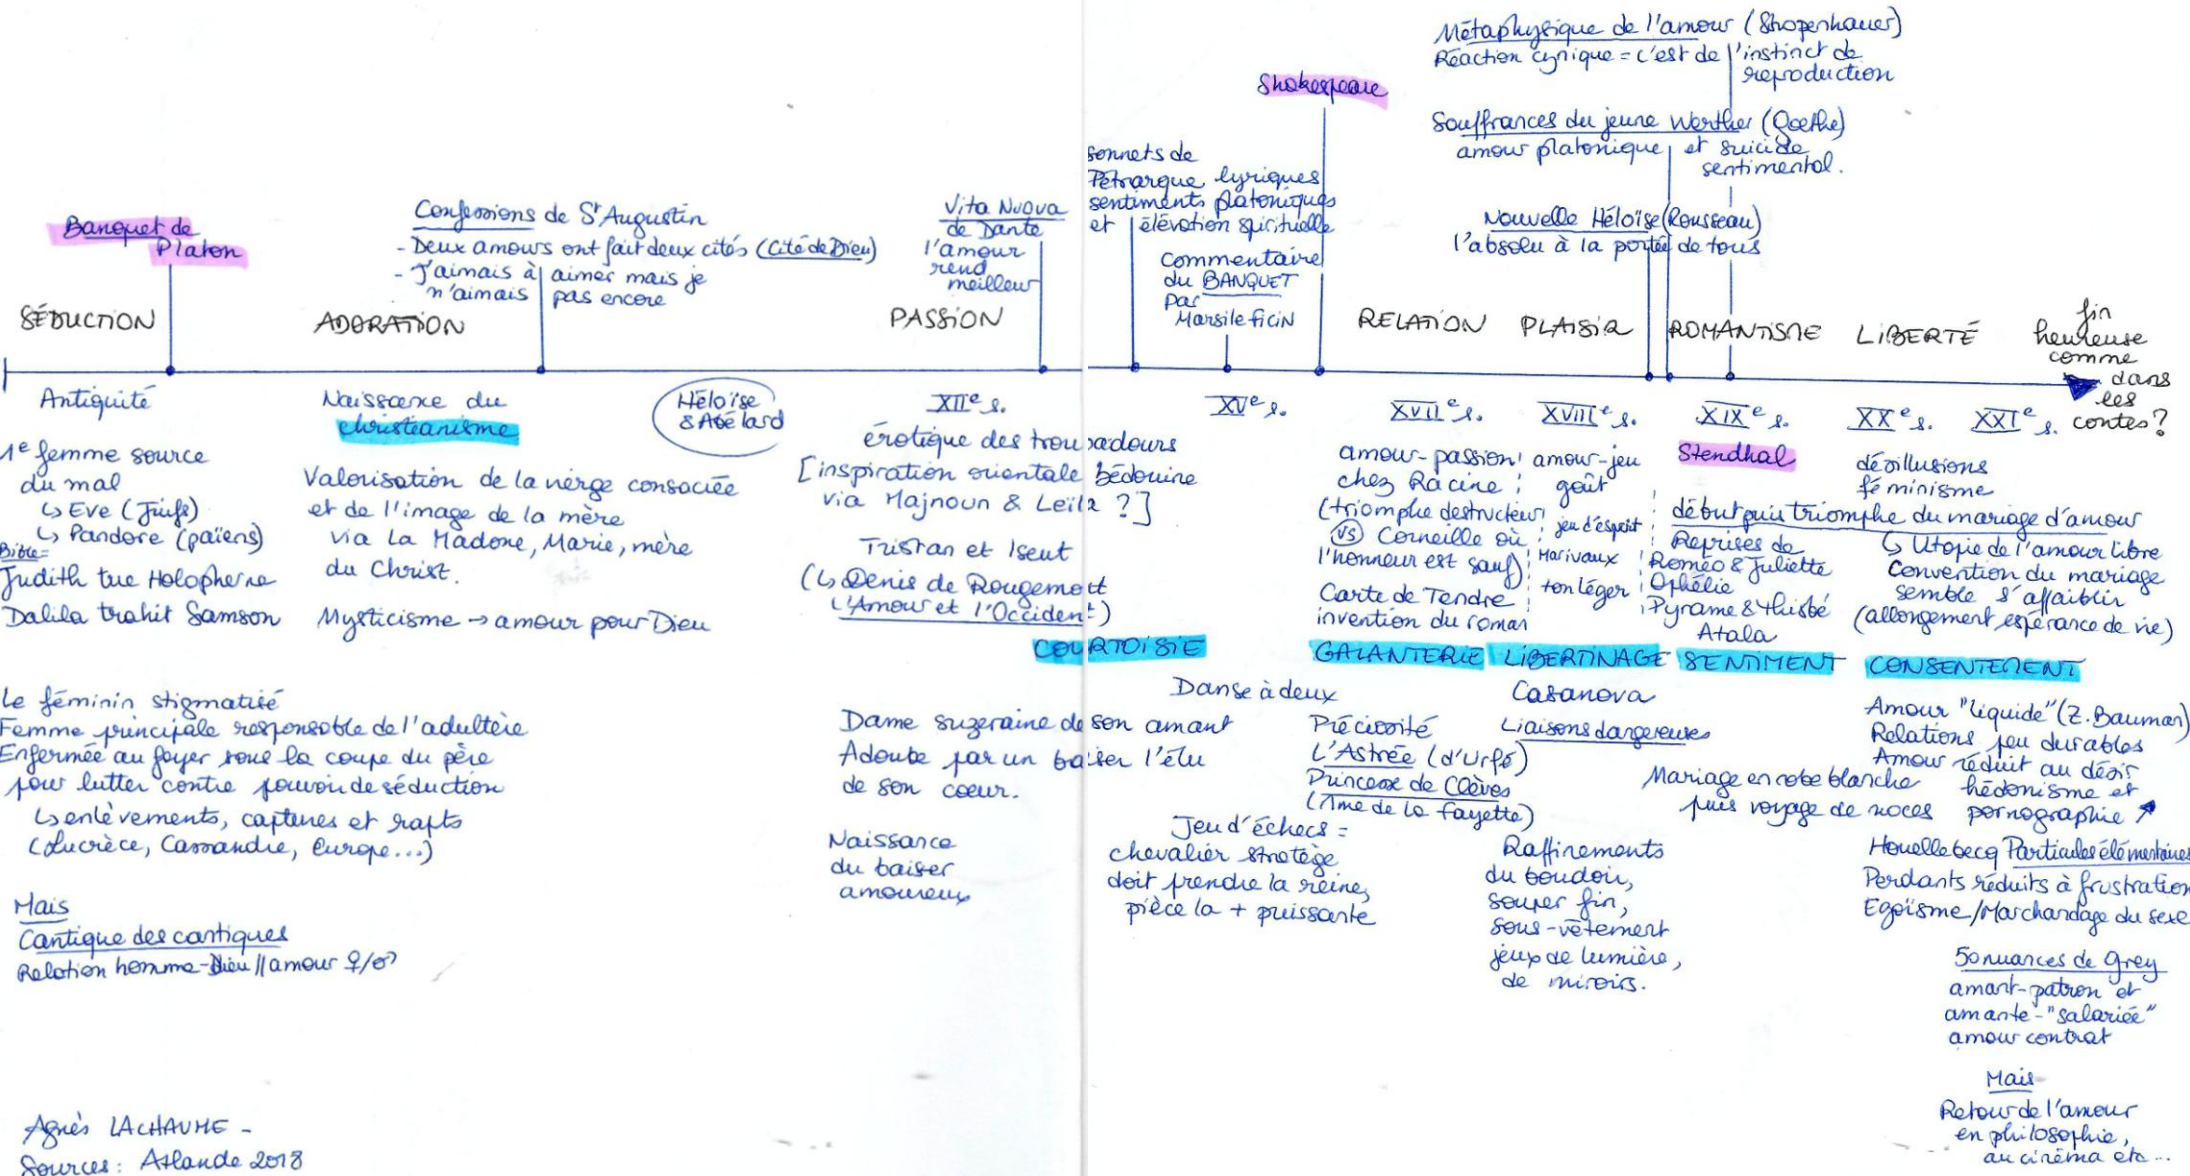 Métaphysique de l'amour (Shopenhauer)
Réaction cynique = c'est de l'instinct de
reproduction
Shakespeare
Souffrances du jeune Werther (Goethe)
amour platonique et suicide
sentimental.
Nouvelle Héloïse (Rousseau)
l'absolu à la portée de tous
sonnets de
Pétrarque lyriques
sentiments platoniques
et élévation spirituelle
commentaire
du BANQUET
par
Marsile ficin
Vita Nuova
de Dante
l'amour
rend
meilleur
Confessions de St Augustin
- Deux amours ont fait deux cités (Cité de Dieu)
- J'aimais à aimer mais je
n'aimais pas encore
Banquet de
Platon
SÉDUCTION
ADORATION
PASSION
RELATION
PLAISIR
ROMANTISME
LIBERTÉ
fin
heureuse
comme
dans
les
contes ?
Antiquité
1e femme source
du mal
↳ Eve (Juifs)
↳ Pandore (païens)
Bible =
Judith tue Holopherne
Dalila trahit Samson
Le féminin stigmatisé
Femme principale responsable de l'adultère
Enfermée au foyer sous la coupe du père
pour lutter contre pouvoir de séduction
↳ enlèvements, captures et rapts
(Lucrèce, Cassandre, Europe...)
Mais
Cantique des cantiques
Relation homme-Dieu // amour ♀/♂
Agnès LACHAUME -
Sources : Atlande 2018
Naissance du
christianisme
Valorisation de la vierge consacrée
et de l'image de la mère
via la Madone, Marie, mère
du Christ.
Mysticisme → amour pour Dieu
Héloïse
& Abélard
XIIe s.
érotique des troubadours
[inspiration orientale bédouine
via Majnoun & Leïla ?]
Tristan et Iseut
(↳ Denis de Rougemont
L'Amour et l'Occident)
COURTOISIE
Dame suzeraine de son amant
Adoube par un baiser l'élu
de son coeur.
Naissance
du baiser
amoureux
XVe s.
Danse à deux
Jeu d'échecs =
chevalier stratège
doit prendre la reine,
pièce la + puissante
XVIIe s.
amour-passion
chez Racine
(triomphe destructeur
vs Corneille où
l'honneur est sauf)
Carte de Tendre
invention du roman
GALANTERIE
Préciosité
L'Astrée (d'Urfé)
Princesse de Clèves
(Mme de la Fayette)
XVIIIe s.
amour-jeu
goût
jeu d'esprit
Marivaux
ton léger
LIBERTINAGE
Casanova
Liaisons dangereuses
Raffinements
du boudoir,
souper fin,
sous-vêtement
jeux de lumière,
de miroirs.
XIXe s.
Stendhal
début puis triomphe du mariage d'amour
Reprises de
Roméo & Juliette
Ophélie
Pyrame & thisbé
Atala
SENTIMENT
Mariage en robe blanche
puis voyage de noces
XXe s.
XXIe s.
désillusions
féminisme
↳ Utopie de l'amour libre
Convention du mariage
semble s'affaiblir
(allongement espérance de vie)
CONSENTEMENT
Amour "liquide" (Z. Bauman)
Relations peu durables
Amour réduit au désir
hédonisme et
pornographie ↗
Houellebecq Particules élémentaires
Perdants réduits à frustration
Egoïsme/Marchandage du sexe
50 nuances de Grey
amant-patron et
amante-"salariée"
amour contrat
Mais
Retour de l'amour
en philosophie,
au cinéma etc...